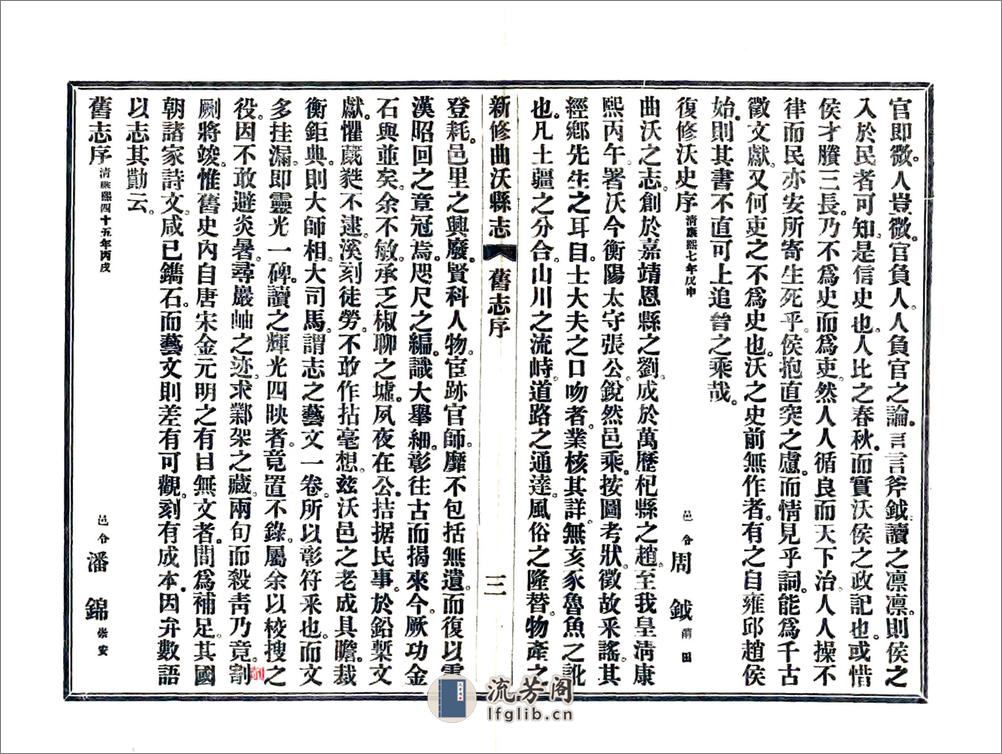 官即微人豈微官負人人負官之論言言斧鉞讀之凛凛則侯之
入於民者可知是信史也人比之春秋而實沃侯之政記也或惜
侯才賸三長乃不爲史而爲吏然人人循良而天下治人人操不
律而民亦安所寄生死乎侯抱直突之慮而情見乎詞能爲千古
徵文獻又何吏之不爲史也沃之史前無作者有之自雍邱趙侯
始則其書不直可上追晉之乘哉
復修沃史序 清康熙七年戊申 邑令 周鉞 莆田
曲沃之志創於嘉靖恩縣之劉成於萬歷杞縣之趙至我皇清康
熙丙午署沃令衡陽太守張公銳然邑乘按圖考狀徵故釆謠其
經鄉先生之耳自士大夫之口吻者業核其詳無亥豕魯魚之訛
也凡土疆之分合山川之流峙道路之通達風俗之隆替物產之
新修曲沃縣志 舊志序 三
登耗邑里之興廢賢科人物宦跡官師靡不包括無遺而復以雲
漢昭回之章冠焉咫尺之編識大舉細彰往古而揭來今厥功金
石與並矣余不敏承乏椒聊之墟夙夜在公拮据民事於鉛槧文
獻懼蕆甤不逮溪刻徒勞不敢作拈毫想玆沃邑之老成具瞻裁
衡鉅典則大師相大司馬謂志之藝文一卷所以彰符釆也而文
多挂漏即靈光一碑讀之輝光四映者竟置不錄屬余以校搜之
役因不敢避炎暑尋巖岫之迹求鄴架之藏兩旬而殺青乃竟剞
劂將竣惟舊史內自唐宋金元明之有目無文者間爲補足其國
朝諸家詩文咸已鐫石而藝文則差有可觀刻有成本因弁數語
以志其勤云
舊志序 清康熙四十五年丙戌 邑令 潘錦 崇安
流芳阁
lfglib.cn